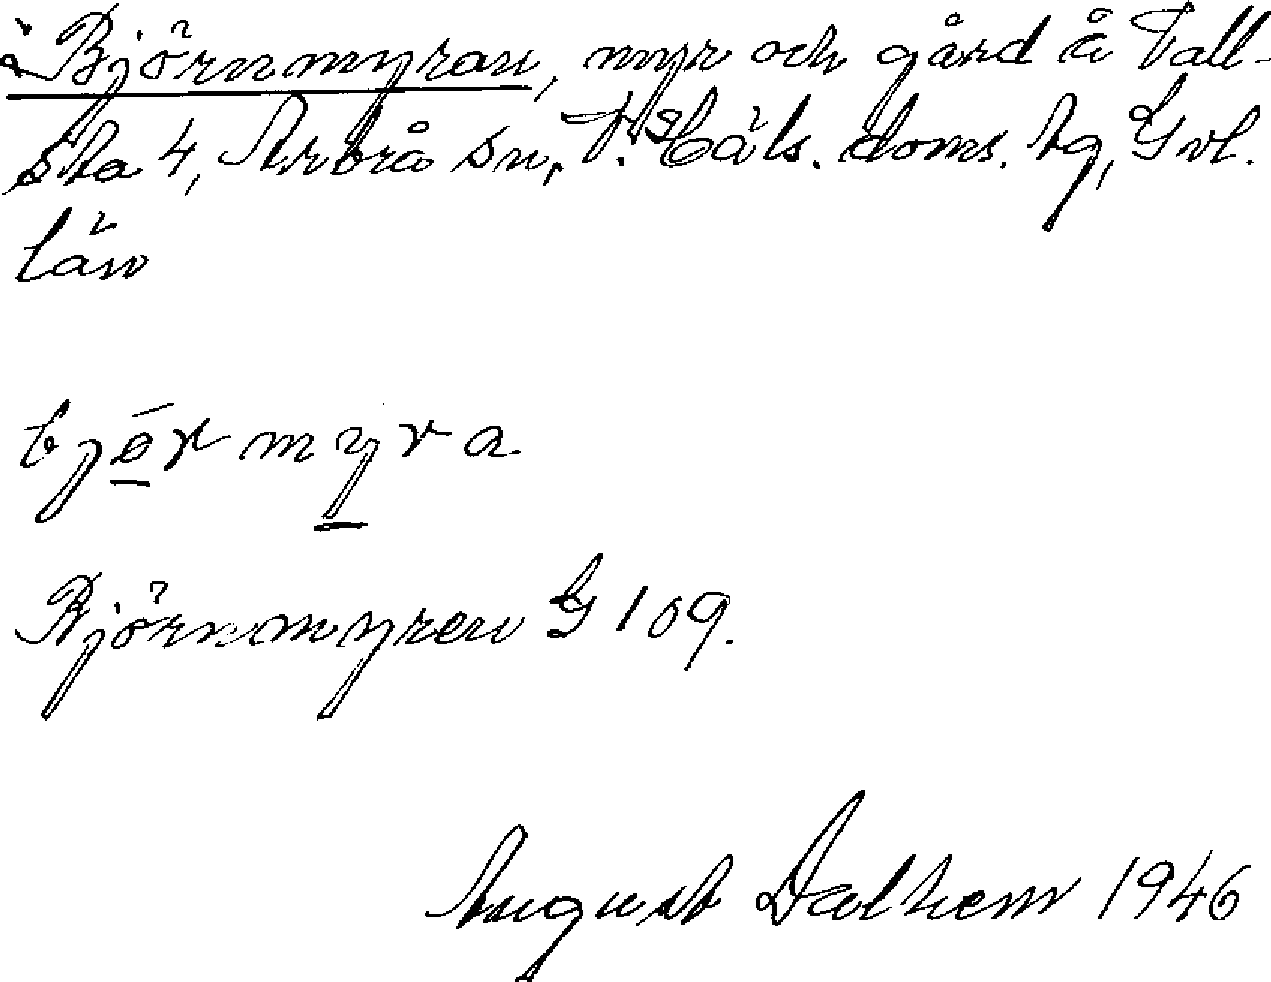 Björnmyran, myr och gård å Vall-
sta 4, Arbrå sn, V. Häls. doms. tg, Gvl.
län
bjö́r myra
Björnmyren G 109.
August Dalhem 1946